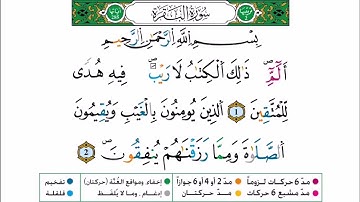 سُورَةُ البَقَرَةِ
بِسْمِ اللَّهِ الرَّحْمَٰنِ الرَّحِيمِ
الٓمٓ ذَٰلِكَ الْكِتَٰبُ لَا رَيْبَ ۛ فِيهِ هُدًى
لِّلْمُتَّقِينَ 1 الَّذِينَ يُؤْمِنُونَ بِالْغَيْبِ وَيُقِيمُونَ
الصَّلَوٰةَ وَمِمَّا رَزَقْنَٰهُمْ يُنفِقُونَ 2
مدّ 6 حركات لزوماً مدّ 2 أو 4 أو 6 جوازاً إخفاء ومواقع الغُنَّة (حركتان) تفخيم
مدّ مشبع 6 حركات مدّ حركتان إدغام، وما لا يُلفظ قلقلة